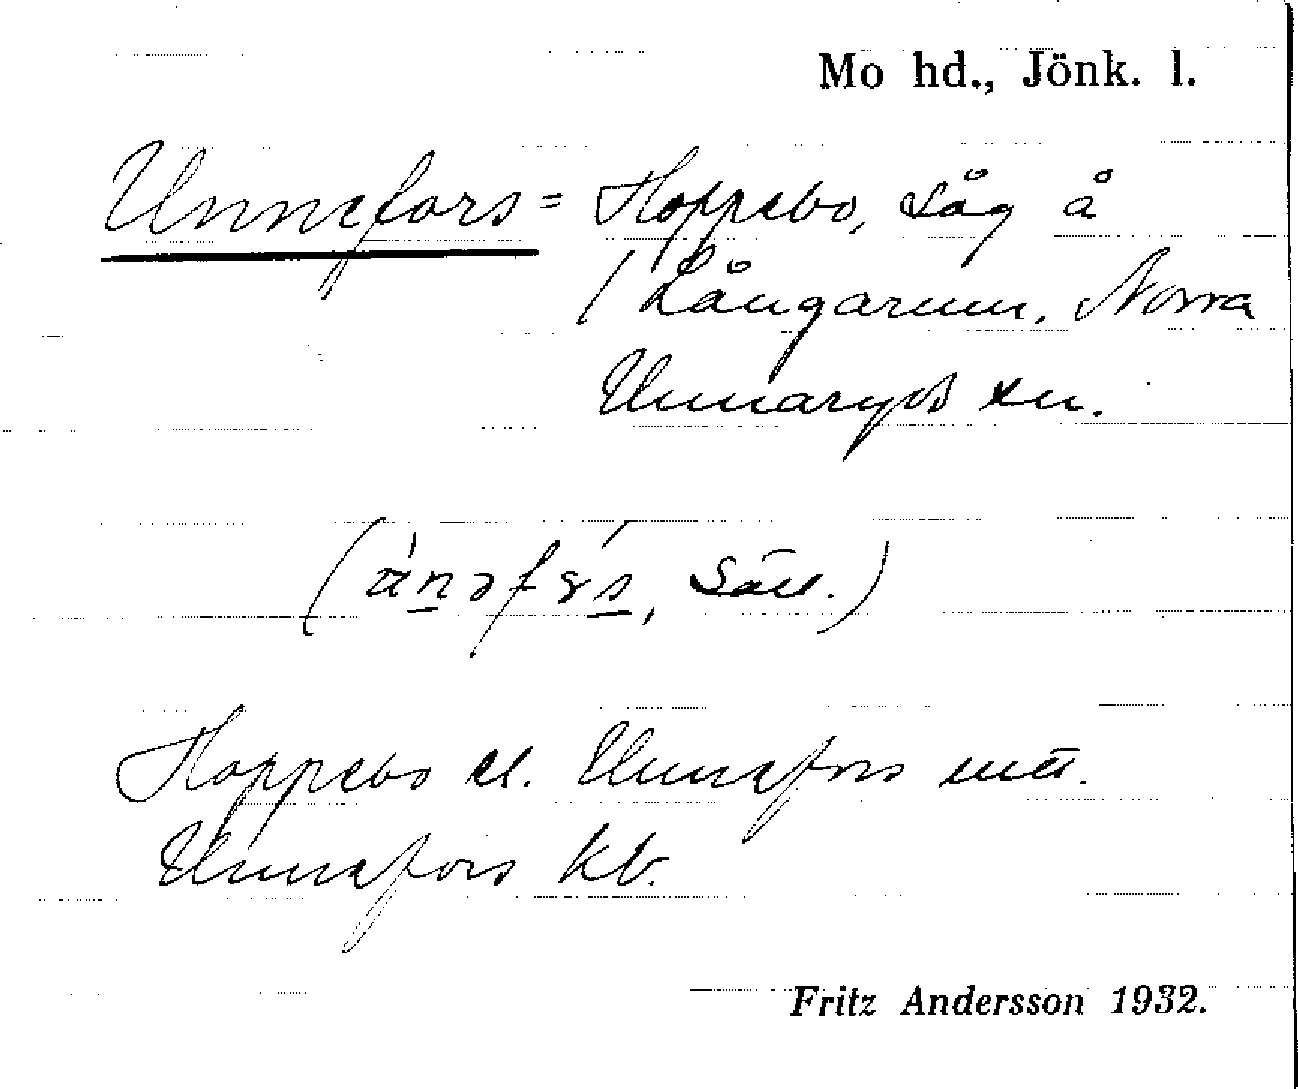 Mo hd., Jönk. l.
Unnefors = Hoppebo, Såg å
/ Långarum, Norra
Unnaryds sn.
Hoppebo el. Unnefors
Unnefors kb.
Fritz Andersson 1932.